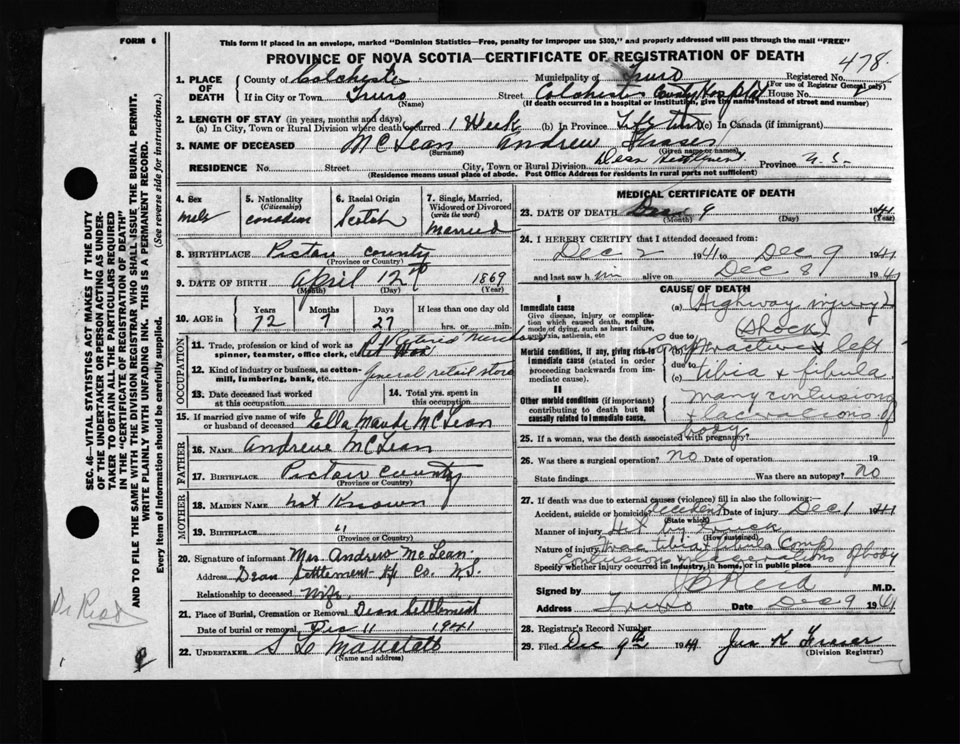 FORM 6
This form if placed in an envelope, marked "Dominion Statistics—Free, penalty for improper use $300," and properly addressed will pass through the mail "FREE"
PROVINCE OF NOVA SCOTIA—CERTIFICATE OF REGISTRATION OF DEATH
478
1. PLACE OF DEATH
County of Colchester Municipality of Truro Registered No.
(For use of Registrar General only)
If in City or Town Truro Street Colchester County Hospital House No.
(Name) (If death occurred in a hospital or institution, give the name instead of street and number)
2. LENGTH OF STAY (in years, months and days)
(a) In City, Town or Rural Division where death occurred 1 Week (b) In Province Life time (c) In Canada (if immigrant)
3. NAME OF DECEASED McLean Andrew Fraser
(Surname) (Given name or names)
RESIDENCE No. Street City, Town or Rural Division Dean Settlement Province N.S.
(Residence means usual place of abode. Post Office Address for Residents in rural parts not sufficient)
4. Sex male
5. Nationality (Citizenship) Canadian
6. Racial Origin Scotch
7. Single, Married, Widowed or Divorced (write the word) Married
8. BIRTHPLACE Pictou County
(Province or Country)
9. DATE OF BIRTH April 12th 1869
(Month) (Day) (Year)
10. AGE in Years Months Days If less than one day old
72 7 27 hrs. or min.
OCCUPATION
11. Trade, profession or kind of work as spinner, teamster, office clerk, etc. Retired Merchant
12. Kind of industry or business, as cotton-mill, lumbering, bank, etc. General retail store
13. Date deceased last worked at this occupation
14. Total yrs. spent in this occupation
15. If married give name of wife or husband of deceased Ella Maude McLean
FATHER
16. NAME Andrew McLean
17. BIRTHPLACE Pictou County
(Province or Country)
MOTHER
18. MAIDEN NAME Not Known
19. BIRTHPLACE "
(Province or Country)
20. Signature of informant Mrs. Andrew McLean
Address Dean Settlement Hfx Co. N.S.
Relationship to deceased Wife
21. Place of Burial, Cremation or Removal Dean Settlement
Date of burial or removal Dec 11 1941
22. UNDERTAKER
(Name and address)
MEDICAL CERTIFICATE OF DEATH
23. DATE OF DEATH Dec 9 1941
(Month) (Day)
24. I HEREBY CERTIFY that I attended deceased from:
Dec 2 1941 to Dec 9 1941
and last saw him alive on Dec 8 1941
CAUSE OF DEATH
I
Immediate cause
Give disease, injury or complication which caused death, not the mode of dying, such as heart failure, asphyxia, asthenia, etc.
(a) Highway injury
(Shock)
due to
Morbid conditions, if any, giving rise to immediate cause (stated in order proceeding backwards from immediate cause).
Comp fracture left
due to
(c) tibia & fibula
II
Other morbid conditions (if important) contributing to death but not causally related to immediate cause.
Many contusions
& lacerations of
body
25. If a woman, was the death associated with pregnancy?
26. Was there a surgical operation? No Date of operation 19
State findings Was there an autopsy? No
27. If death was due to external causes (violence) fill in also the following:
Accident, suicide or homicide? Accident Date of injury Dec 1 1941
(State which)
Manner of injury Hit by Truck
(How sustained)
Nature of injury Frac tibia & fibula Comp
Contusions & lacerations of body
Specify whether injury occurred in industry, in home, or in public place
Signed by Reid M.D.
Address Truro Date Dec 9 1941
28. Registrar's Record Number
29. Filed Dec 9th 1941 Jas K Fraser
(Division Registrar)
SEC. 46—VITAL STATISTICS ACT MAKES IT THE DUTY
OF THE UNDERTAKER OR PERSON ACTING AS UNDERTAKER TO OBTAIN ALL THE PARTICULARS REQUIRED
IN THE "CERTIFICATE OF REGISTRATION OF DEATH"
AND TO FILE THE SAME WITH THE DIVISION REGISTRAR WHO SHALL ISSUE THE BURIAL PERMIT.
WRITE PLAINLY WITH UNFADING INK. THIS IS A PERMANENT RECORD.
Every item of information should be carefully supplied. (See reverse side for instructions.)
Dr Reid